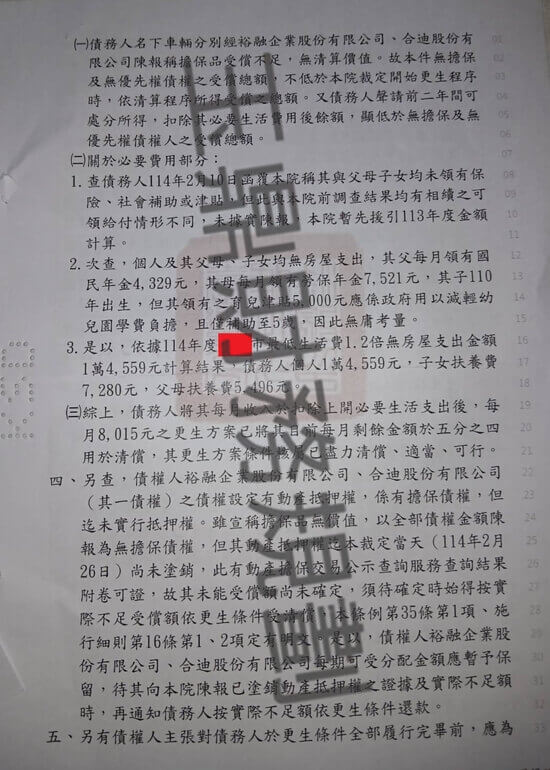 ㈠債務人名下車輛分別經裕融企業股份有限公司、合迪股份有
限公司陳報稱擔保品受償不足，無清算價值。故本件無擔保
及無優先權債權之受償總額，不低於本院裁定開始更生程序
時，依清算程序所得受償之總額。又債務人聲請前二年間可
處分所得，扣除其必要生活費用後餘額，顯低於無擔保及無
優先權債權人之受償總額。
㈡關於必要費用部分：
1.查債務人114年2月10日函覆本院稱其與父母子女均未領有保
險、社會補助或津貼，但此與本院前調查結果均有相續之可
領給付情形不同，未據實陳報，本院暫先援引113年度金額
計算。
2.次查，個人及其父母、子女均無房屋支出，其父每月領有國
民年金4,329元，其母每月領有勞保年金7,521元，其子110
年出生，但其領有之育兒津貼5,000元應係政府用以減輕幼
兒園學費負擔，且僅補助至5歲，因此無庸考量。
3.是以，依據114年度 市最低生活費1.2倍無房屋支出金額
1萬4,559元計算結果，債務人個人1萬4,559元，子女扶養費
7,280元，父母扶養費5,496元。
㈢綜上，債務人將其每月收入於扣除上開必要生活支出後，每
月8,015元之更生方案已將其目前每月剩餘金額於五分之四
用於清償，其更生方案條件核屬已盡力清償、適當、可行。
四、另查，債權人裕融企業股份有限公司、合迪股份有限公司
（其一債權）之債權設定有動產抵押權，係有擔保債權，但
迄未實行抵押權。雖宣稱擔保品無價值，以全部債權金額陳
報為無擔保債權，但其動產抵押權迄本裁定當天（114年2月
26日）尚未塗銷，此有動產擔保交易公示查詢服務查詢結果
附卷可證，故其未能受償額尚未確定，須待確定時始得按實
際不足受償額依更生條件受清償，本條例第35條第1項、施
行細則第16條第1、2項定有明文。是以，債權人裕融企業股
份有限公司、合迪股份有限公司每期可受分配金額應暫予保
留，待其向本院陳報已塗銷動產抵押權之證據及實際不足額
時，再通知債務人按實際不足額依更生條件還款。
五、另有債權人主張對債務人於更生條件全部履行完畢前，應為